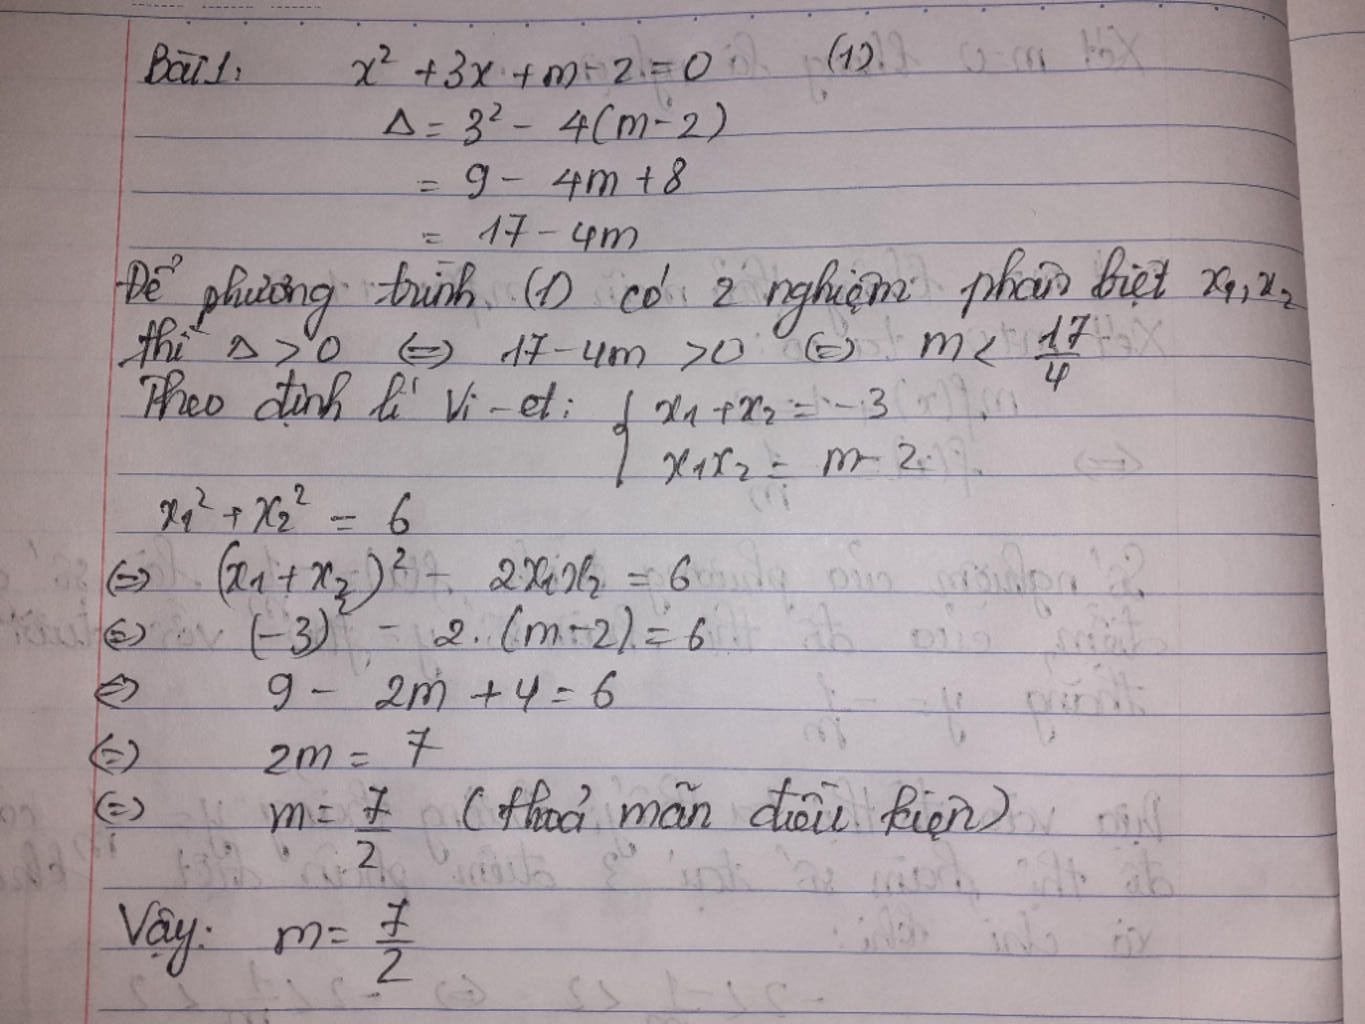 Bài 1: x² + 3x + m - 2 = 0 (1)
Δ = 3² - 4(m - 2)
= 9 - 4m + 8
= 17 - 4m
Để phương trình (1) có 2 nghiệm phân biệt x₁, x₂
thì Δ > 0 ⇔ 17 - 4m > 0 ⇔ m < 17/4
Theo định lí Vi-et: { x₁ + x₂ = -3
x₁x₂ = m - 2
x₁² + x₂² = 6
⇔ (x₁ + x₂)² - 2x₁x₂ = 6
⇔ (-3)² - 2.(m - 2) = 6
⇔ 9 - 2m + 4 = 6
⇔ 2m = 7
⇔ m = 7/2 (thoả mãn điều kiện)
Vậy: m = 7/2